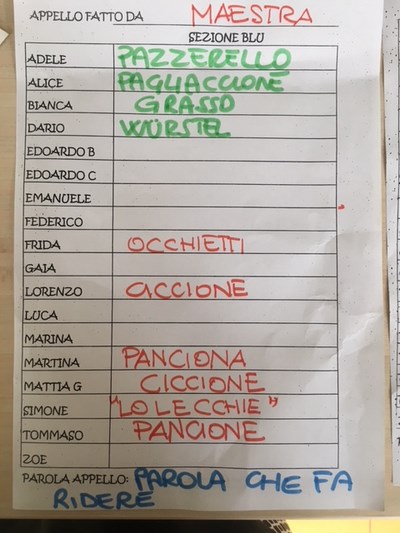 APPELLO FATTO DA MAESTRA
SEZIONE BLU
ADELE PAZZERELLO
ALICE PAGLIACCIONE
BIANCA GRASSO
DARIO WÜRSTEL
EDOARDO B
EDOARDO C
EMANUELE
FEDERICO
FRIDA OCCHIETTI
GAIA
LORENZO CICCIONE
LUCA
MARINA
MARTINA PANCIONA
MATTIA G CICCIONE
SIMONE "LO LECCHIE"
TOMMASO PANCIONE
ZOE
PAROLA APPELLO: PAROLA CHE FA
RIDERE